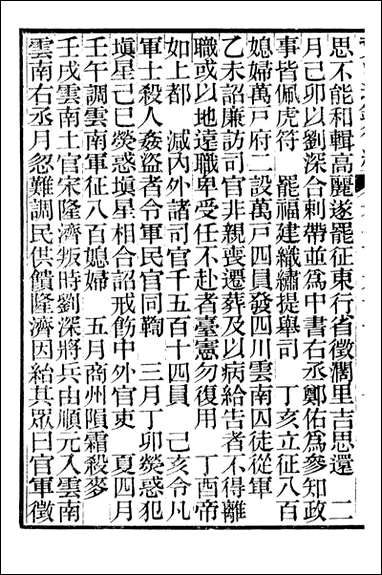 思不能和輯高麗遂罷征東行省徵濶里吉思還　二
月己卯以劉深合剌帶並爲中書右丞鄭佑爲參知政
事皆佩虎符　罷福建織繡提舉司　丁亥立征八百
媳婦萬戸府二設萬戸四員發四川雲南囚徒從軍
乙未詔廉訪司官非親喪遷葬及以病給告者不得離
職或以地遠職卑受任不赴者臺憲勿復用　丁酉帝
如上都　減內外諸司官千五百十四員　己亥令凡
軍士殺人姦盜者令軍民官同鞫　三月丁卯熒惑犯
塡星己巳熒惑塡星相合詔戒飭中外官吏　夏四月
壬午調雲南軍征八百媳婦　五月商州隕霜殺麥
壬戌雲南土官宋隆濟叛時劉深將兵由順元入雲南
雲南右丞月忽難調民供饋隆濟因紿其眾曰官軍徵